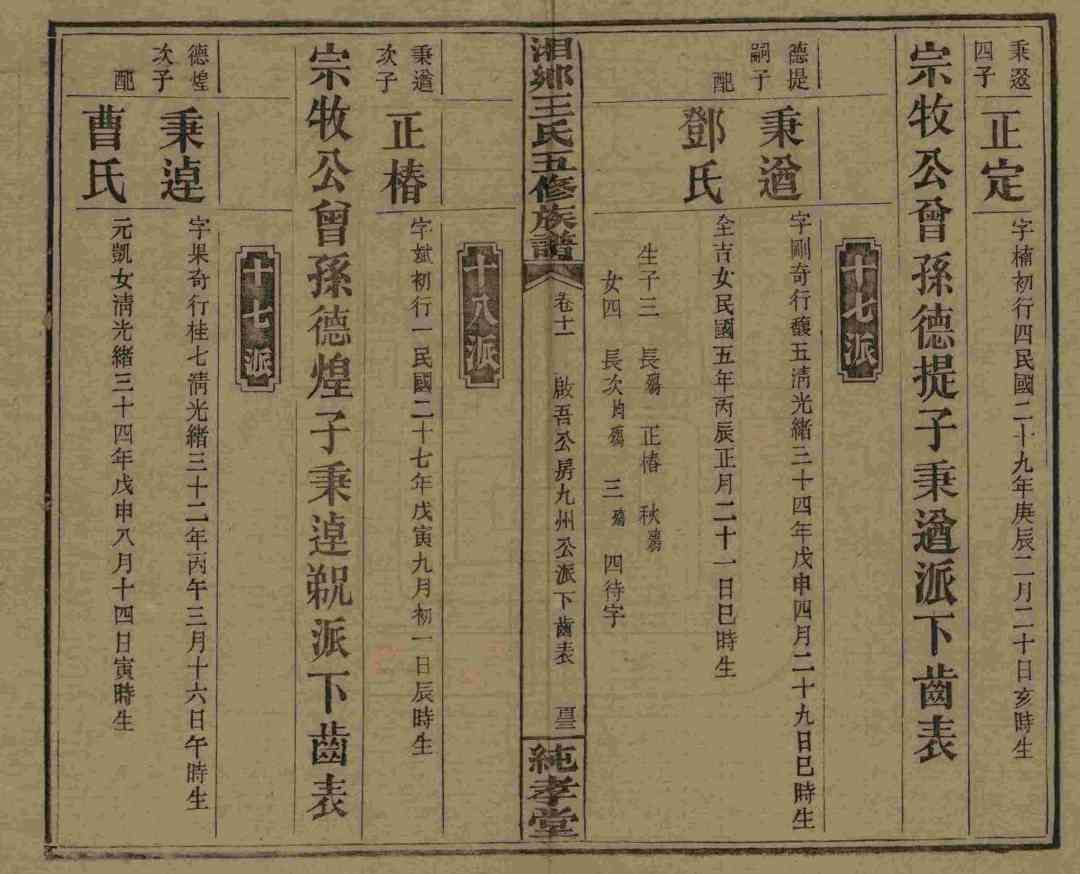 秉逫四子
正定
字楠初行四民國二十九年庚辰二月二十日亥時生
宗牧公曾孫德提子秉遒派下齒表
十七派
德提嗣子
秉遒
字剛奇行馥五清光緒三十四年戊申四月二十九日巳時生
配
鄧氏
全吉女民國五年丙辰正月二十一日巳時生
生子三 長殤 正椿 秋殤
女四 長次均殤 三殤 四待字
湘鄉王氏五修族譜
卷十一
啟吾公房九州公派下齒表
純孝堂
十八派
秉遒次子
正椿
字斌初行一民國二十七年戊寅九月初一日辰時生
宗牧公曾孫德煌子秉逴派下齒表
十七派
德煌次子
秉逴
字果奇行桂七清光緒三十二年丙午三月十六日午時生
配
曹氏
元凱女清光緒三十四年戊申八月十四日寅時生